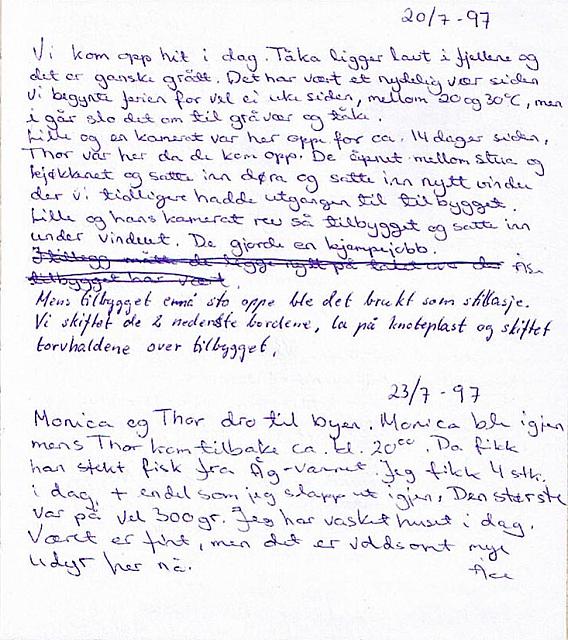 20/7 - 97
Vi kom opp hit i dag. Tåka ligger lavt i fjellene og
det er ganske grått. Det har vært et nydelig vær siden
vi begynte ferien for vel ei uke siden, mellom 20 og 30°C, men
i går slo det om til gråvær og tåke.
Lille og en kamerat var her oppe for ca. 14 dager siden,
Thor var her da de kom opp. De åpnet mellom stua og
kjøkkenet og satte inn døra og satte inn nytt vindu
der vi tidligere hadde utgangen til tilbygget.
Lille og hans kamerat rev så tilbygget og satte inn
under vinduet. De gjorde en kjempejobb.
I tillegg måtte de legge nytt på taket over der
tilbygget har vært.
Mens tilbygget ennå sto oppe ble det brukt som stillasje.
Vi skiftet de 2 nederste bordene, la på knoteplast og skiftet
torvhaldene over tilbygget.
23/7 - 97
Monica og Thor dro til byen. Monica ble igjen
mens Thor kom tilbake ca. kl. 20⁰⁰. Da fikk
han stekt fisk fra Åg-vannet. Jeg fikk 4 stk.
i dag, + endel som jeg slapp ut igjen. Den største
var på vel 300gr. Jeg har vasket huset i dag.
Været er fint, men det er voldsomt mye
udyr her nå.